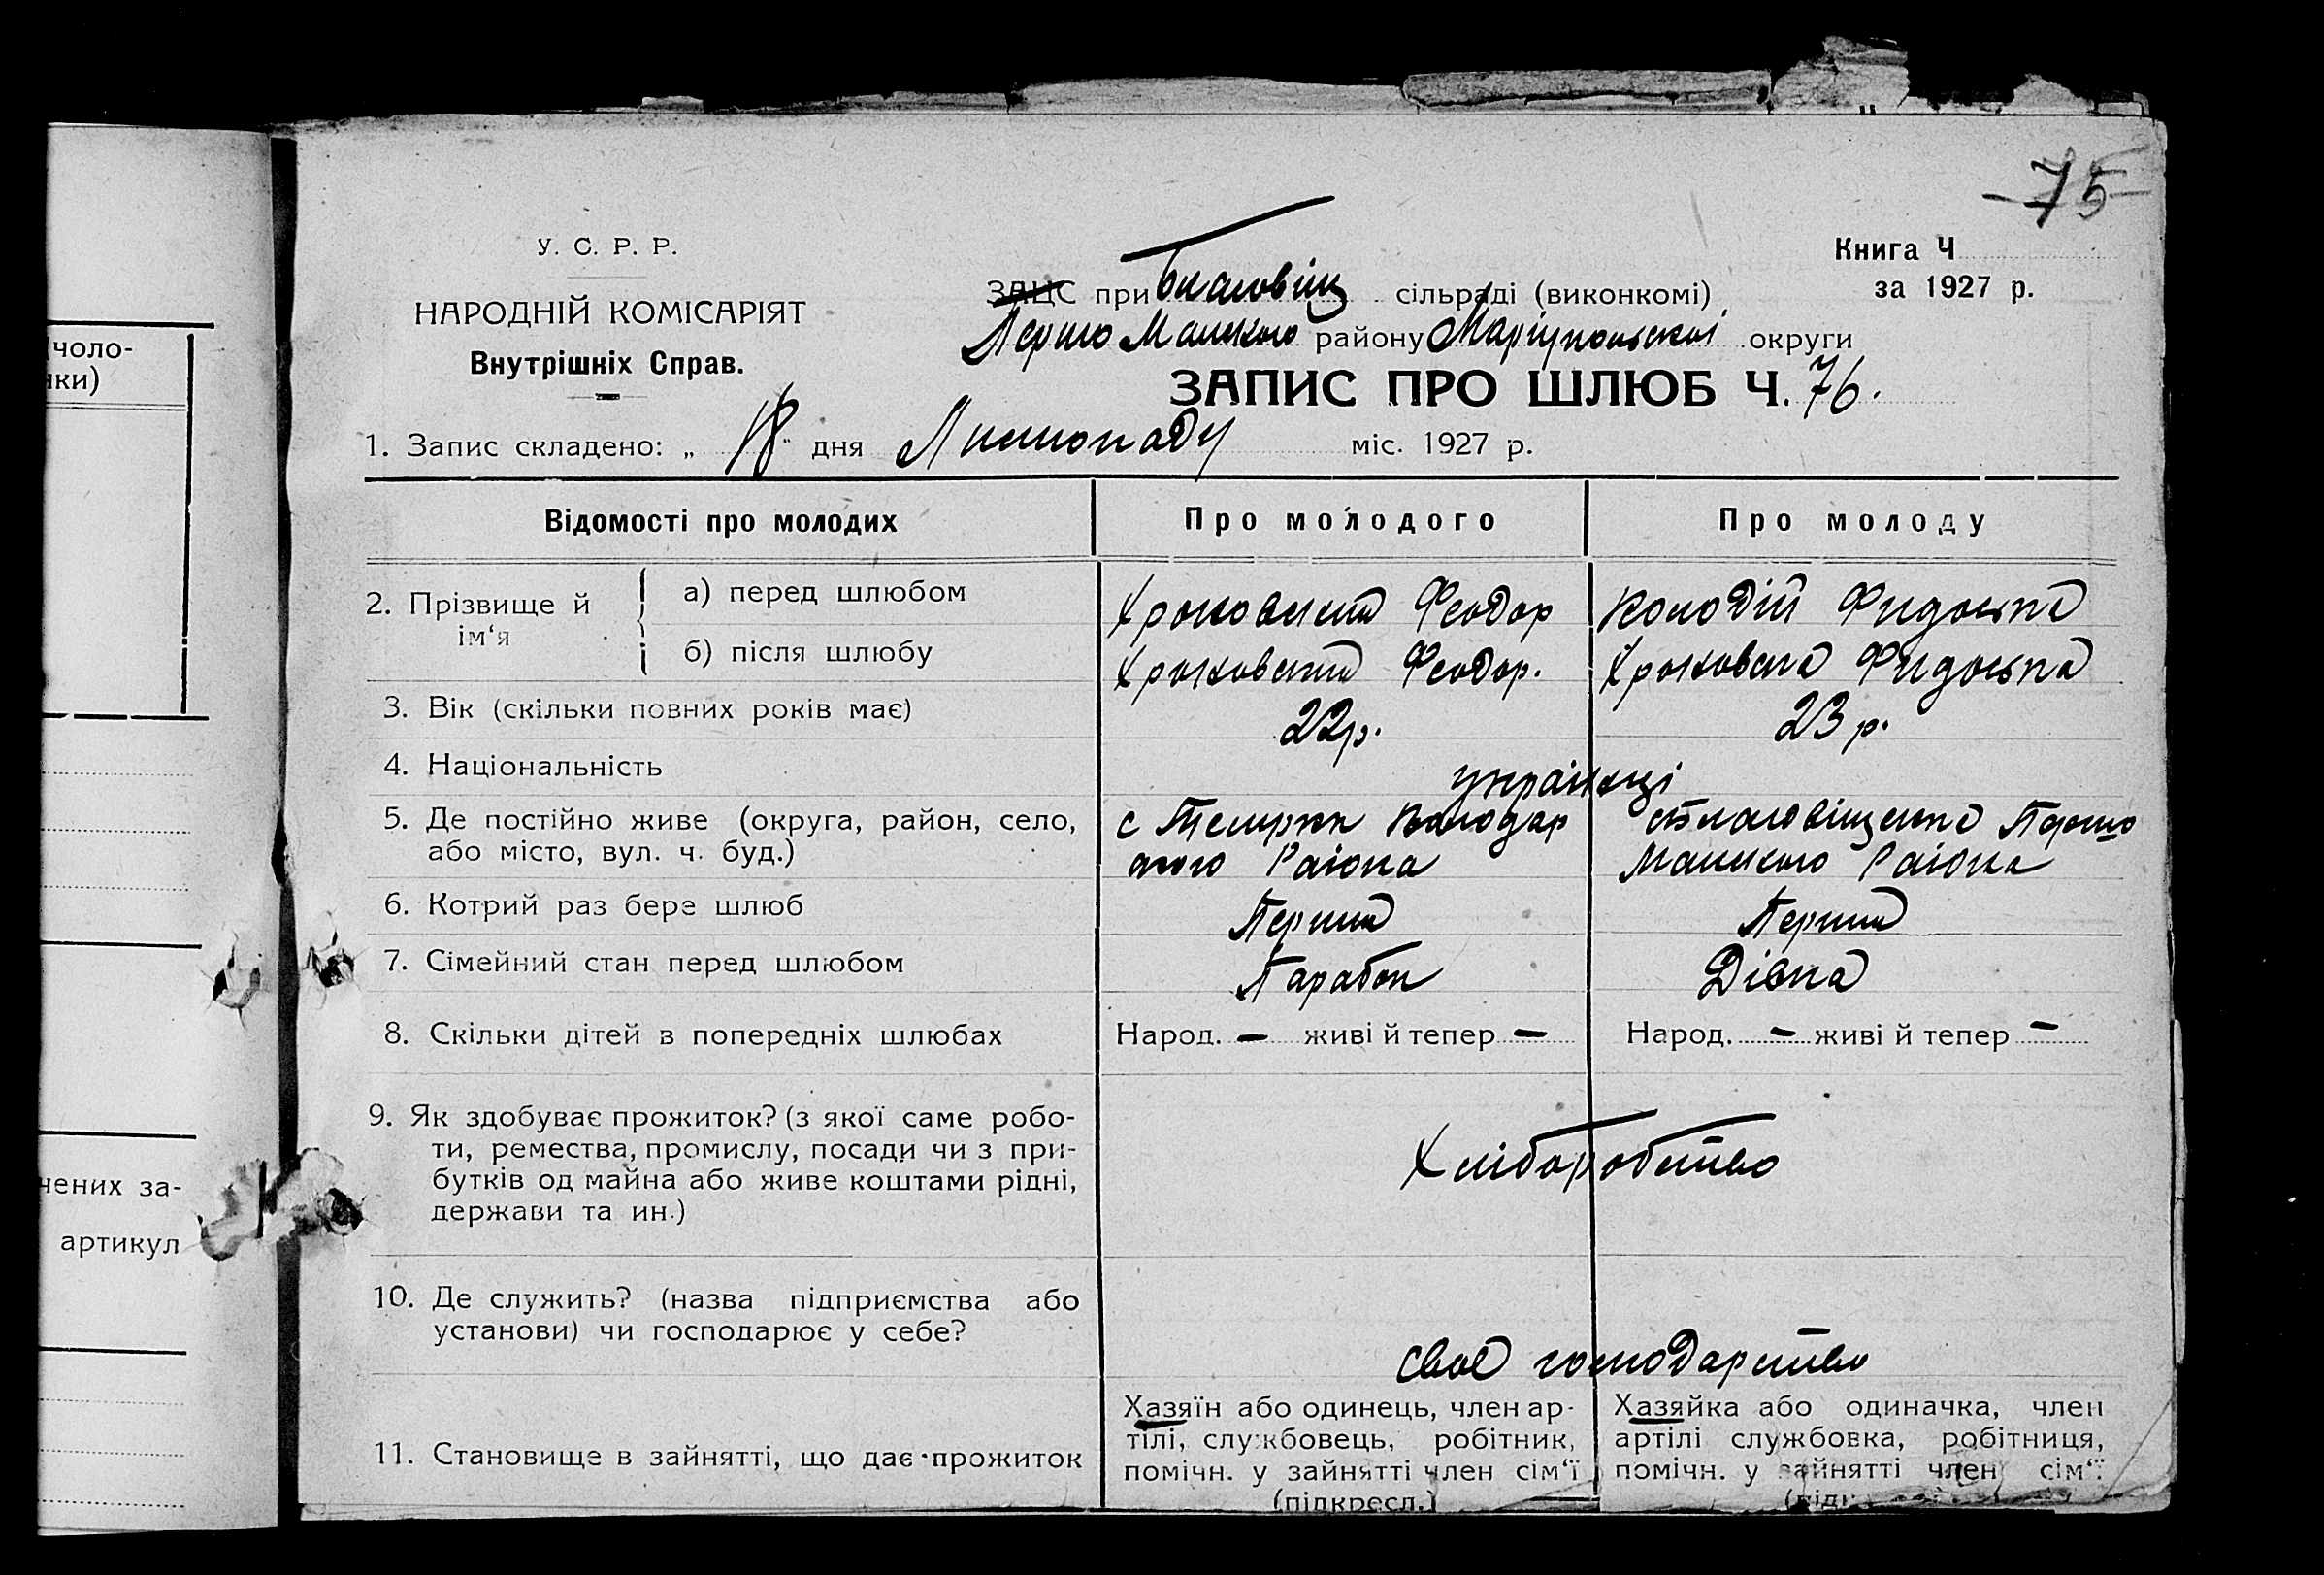 чоло-
нки)
чених за-
артикул
75
У. С. Р. Р.
НАРОДНІЙ КОМІСАРІЯТ
Внутрішніх Справ.
Книга Ч
за 1927 р.
ЗАЦС при Благовіщ сільраді (виконкомі)
Першо Манського району Маріупольської округи
ЗАПИС ПРО ШЛЮБ Ч. 76.
1. Запис складено: „ 18 " дня Листопаду міс. 1927 р.
Відомості про молодих
Про молодого
Про молоду
2. Прізвище й ім'я
а) перед шлюбом
Феодор
Колодій
б) після шлюбу
Феодор.
3. Вік (скільки повних років має)
22р.
23 р.
4. Національність
українці
5. Де постійно живе (округа, район, село,
або місто, вул. ч. буд.)
с Темрюк Володар
ського Раіона
Першо
Манського Раіона
6. Котрий раз бере шлюб
Перший
Перший
7. Сімейний стан перед шлюбом
Парабок
Дівка
8. Скільки дітей в попередніх шлюбах
Народ. — живі й тепер —
Народ. — живі й тепер —
9. Як здобуває прожиток? (з якої саме робо-
ти, ремества, промислу, посади чи з при-
бутків од майна або живе коштами рідні,
держави та ин.)
Хліборобство
10. Де служить? (назва підприємства або
установи) чи господарює у себе?
своє господарство
11. Становище в зайнятті, що дає прожиток
Хазяїн або одинець, член ар-
тілі, службовець, робітник,
помічн. у зайнятті член сім'ї
(підкресл.)
Хазяйка або одиначка, член
артілі службовка, робітниця,
помічн. у зайнятті член сім'ї